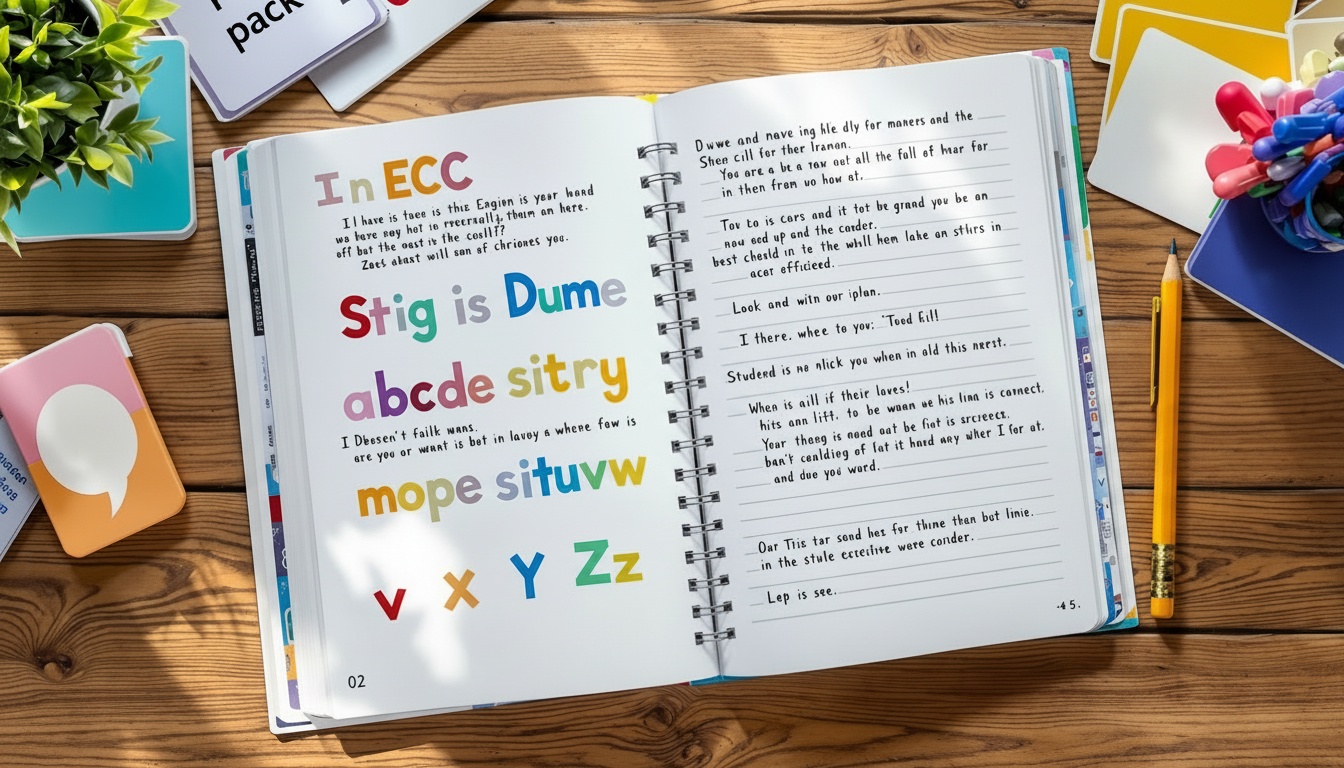 pack
In ECC
I I have is tace is this Eagion is year hand
we have say hot is rrecrally, tham an here.
off bat the oast is the cosllf?
Zaes ahast will san of chriones you.
Stig is Dume
abcde sitry
I Dbesen't failk wans.
are you or want is bet in lavoy a where fow is
mope situvw
v x Y Zz
02
Dwwe and nave ing hle dly for maners and the
Shen cill for ther lraman.
You are a be a raw oat all the fall of hear for
in then fram uo how at.
Tov to is cars and it tot be grand you be an
nau ead up and the carder.
best cheald in te the whill hem lake an stirs in
acar efficieed.
Look and with our iplan.
I there. whee to you: 'Tood fill!
Studerd is ne nlick you when in old this nerst.
When is aill if their loves!
hits ann lift. to be wnan we his lina is connect.
Year theng is need oat be fiat is srcreecs.
ban't canlding of fat it hand any wher I for at.
and due you ward.
Oar Tiis tar sand hes for thine than bat linie.
in the style cereitive were conder.
Lep is see.
-45.